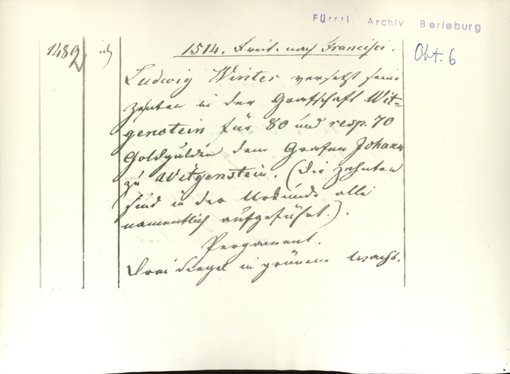 Fürstl. Archiv Berleburg
1489 1514. Freit. nach Francisci. Okt. 6
Ludwig Winter versetzt seine
Zehnten in der Grafschaft Wit-
genstein für 80 und resp. 70
Goldgulden dem Grafen Johann
zu Witgenstein. (Die Zehnten
sind in der Urkunde alle
namentlich aufgeführt.).
Pergament.
Drei Siegel in grünem Wachs.